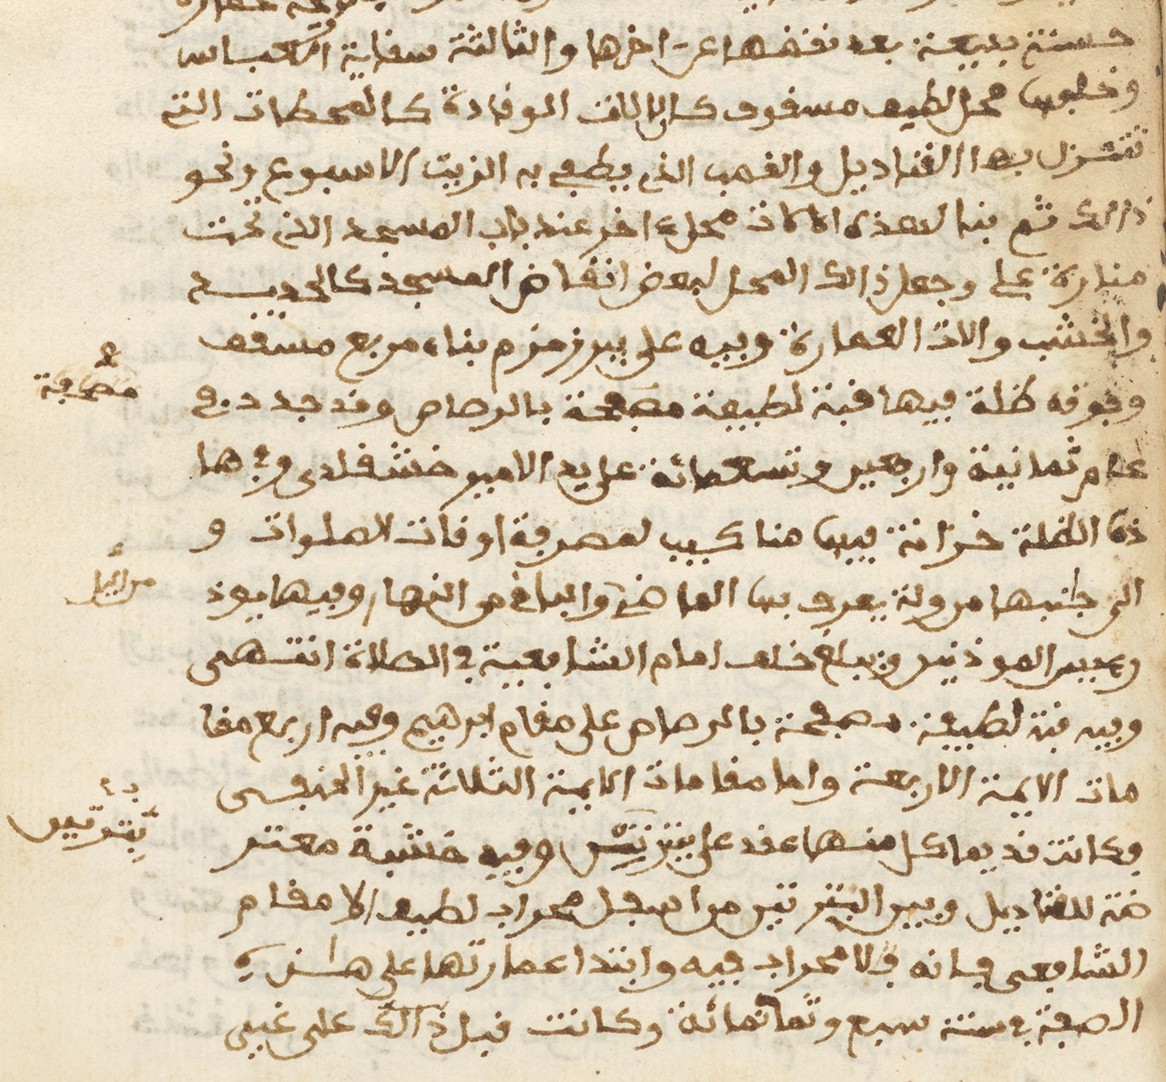 حسنة بديعة بعد نقضها عن اخرها والثالثة سقاية العباس
وخلفها محل لطيف مسقوف كان لالات الوقادة كالمحطات التي
تنزل بها القناديل والقصب الذي يطفى به الزيت الاسبوع ونحو
ذالك ثم بنا لهذه الالات محلا اخر عند باب المسجد الذي تحت
منارة علي وجعل ذالك المحل لبعض انقاض المسجد كالحديد
والخشب والات العمارة وفيه على بير زمزم بناء مربع مسقف
وفوقه ظلة فيها قبة لطيفة مصفحة بالرصاص وقد جدد في
مصفحة
عام ثمانية واربعين وتسعمائة على يد الامير خشقلدي وفي ها
ذه الظلة خزانة فيها مناكيب لمعرفة اوقات الصلوات و
الى جانبها مزولة يعرف بها الماضي والباقي من النهار وفيها يوذ
رءيس الموذنين ويبلغ خلف امام الشافعية في الصلاة انتهى
وفيه قبة لطيفة مصفحة بالرصاص على مقام ابرهيم وفيه اربع مقا
مات الايمة الاربعة واما مقامات الايمة الثلاثة غير الحنفي
بترتين
فكانت قديما كل منها عقد على بترتين وفيه خشبة معتر
ضة للقناديل وبين البترتين من اسفل محراب لطيف الا مقام
الشافعي فانه بلا محراب فيه وابتدا عمارتها على هذه
الصفة في سنة سبع وثمانمائة وكانت قبل ذالك على غير